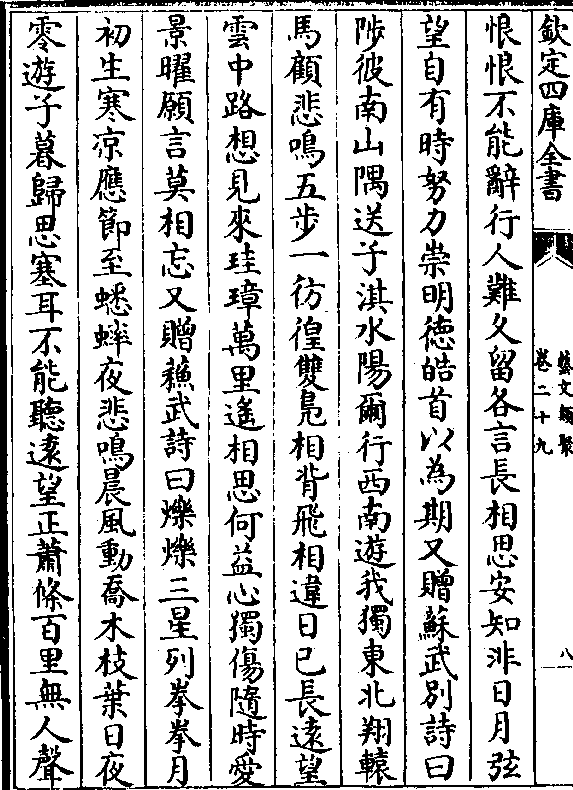 欽定四庫全書
藝文類聚
卷二十九
八
恨恨不能辭行人難久留各言長相思安知非日月弦
望自有時努力崇明德皓首以為期又贈蘇武别詩曰
陟彼南山隅送子淇水陽爾行西南遊我獨東北翔轅
馬顧悲鳴五步一彷徨雙鳧相背飛相違日已長遠望
雲中路想見來珪璋萬里遙相思何益心獨傷隨時愛
景曜願言莫相忘又贈蘓武詩曰爍爍三星列拳拳月
初生寒凉應節至蟋蟀夜悲鳴晨風動喬木枝葉日夜
零遊子暮歸思塞耳不能聽遠望正蕭條百里無人聲